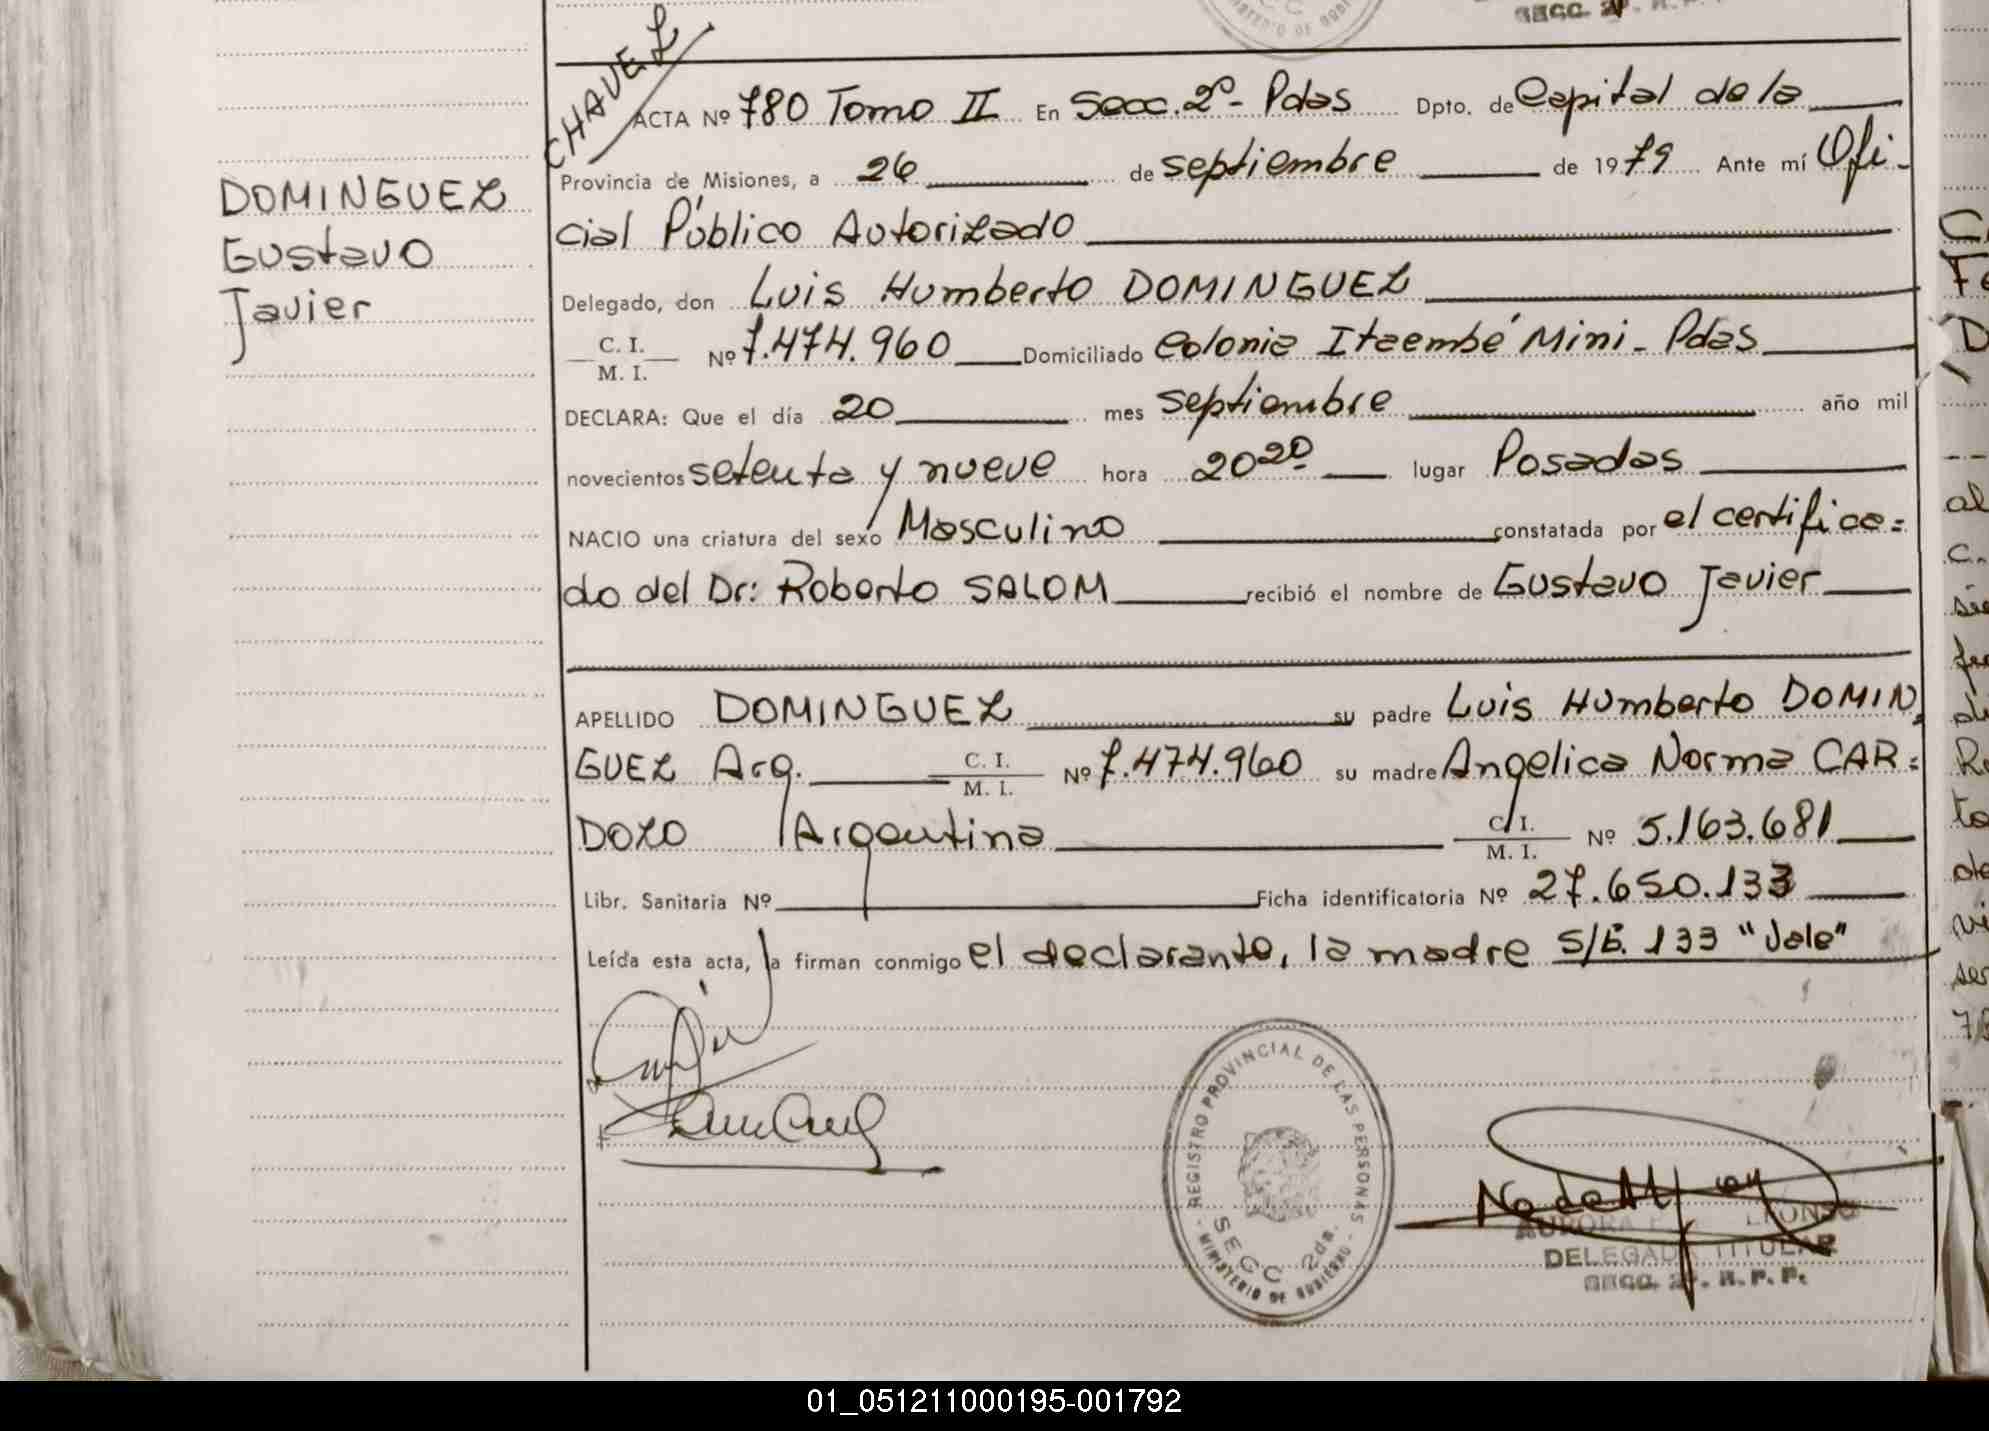 SECC. 2ª. R. P. P.
MINISTERIO DE GOBIERNO
CHAVEZ
ACTA Nº 780 Tomo II En Secc. 2ª - Pdas Dpto. de Capital de la
Provincia de Misiones, a 26 de septiembre de 1979 Ante mí Ofi-
cial Público Autorizado
Delegado, don Luis Humberto DOMINGUEZ
C. I.
M. I.
Nº 7.474.960 Domiciliado Colonia Itaembé Mini - Pdas
DECLARA: Que el día 20 mes septiembre año mil
novecientos setenta y nueve hora 20 20 lugar Posadas
NACIO una criatura del sexo Masculino constatada por el certifica=
do del Dr: Roberto SALOM recibió el nombre de Gustavo Javier
APELLIDO DOMINGUEZ su padre Luis Humberto DOMIN
GUEZ Arg. C. I.
M. I.
Nº 7.474.960 su madre Angelica Norma CAR=
DOZO Argentina C. I.
M. I.
Nº 5.163.681
Libr. Sanitaria Nº Ficha identificatoria Nº 27.650.133
Leída esta acta, la firman conmigo el declarante, la madre S/E. 133 "Vale"
DOMINGUEZ
Gustavo
Javier
REGISTRO PROVINCIAL DE LAS PERSONAS
SECC 2da.
MINISTERIO DE GOBIERNO
AURORA
DELEGADA TITULAR
SECC. 2ª. R. P. P.
01_051211000195-001792